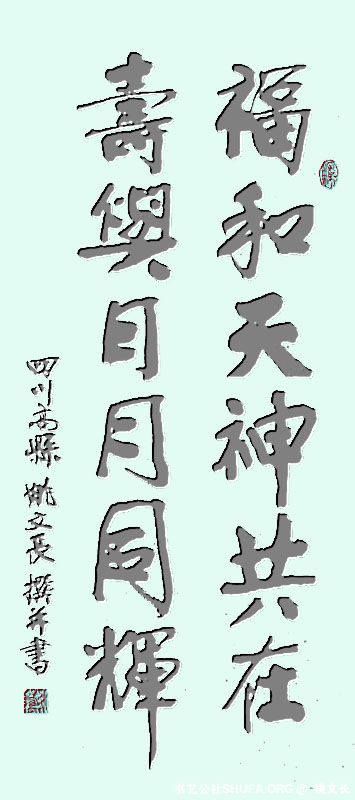 福和天神共在
壽與日月同輝
四川高縣姚文長撰并書
书艺公社SHUFA.ORG @ 姚文长